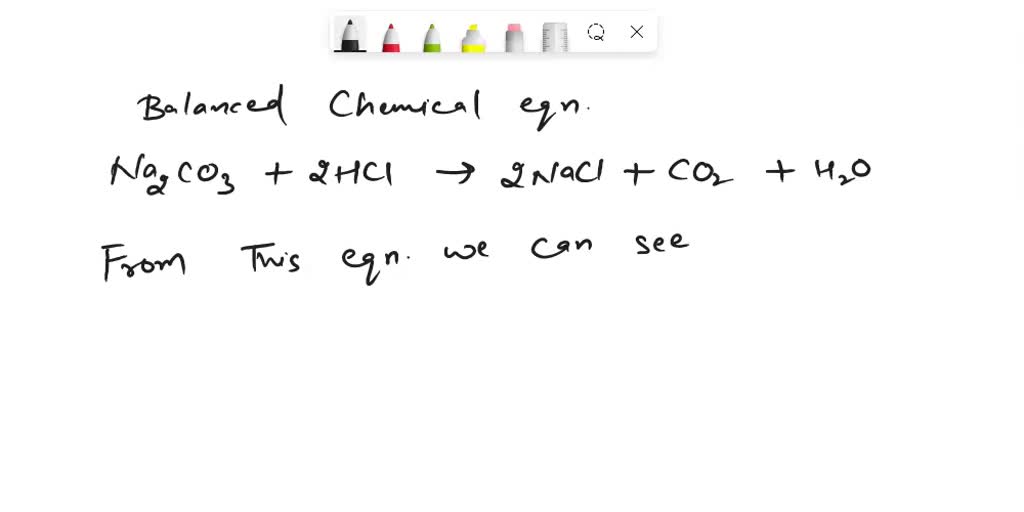 Balanced Chemical eqn.
Na₂CO₃ + 2HCl → 2NaCl + CO₂ + H₂O
From This eqn. we can see